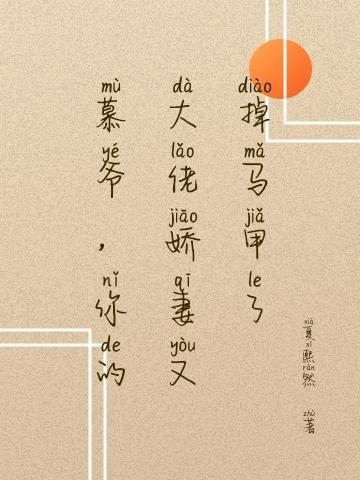 mù yé , nǐ de
慕爷，你的
dà lǎo jiāo qī yòu
大佬娇妻又
diào mǎ jiǎ le
掉马甲了
xià xī rán zhù
夏熙然 著